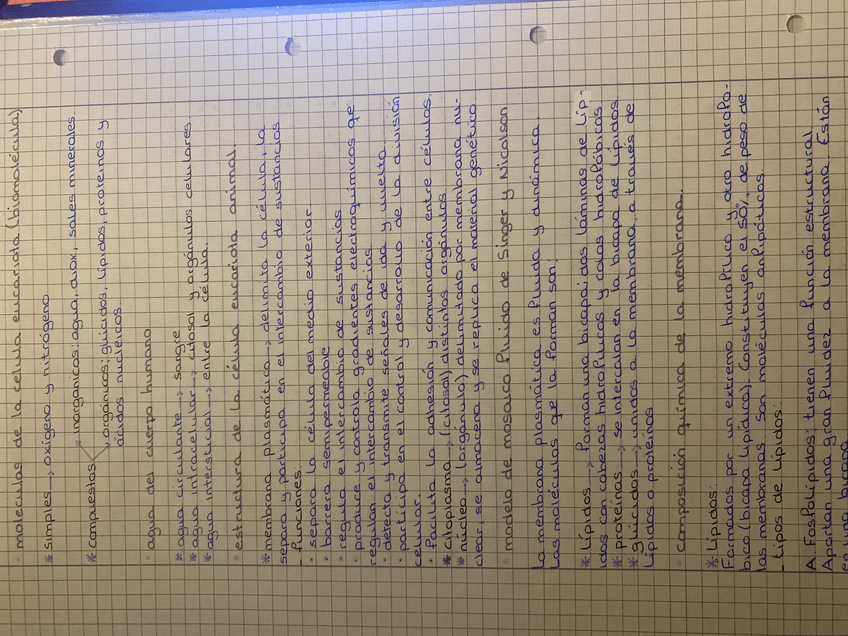 · moleculas de la celula eucariota (biomolécula)
* simples → oxígeno y nitrógeno
→ inorgánicos: agua, diox, sales minerales
* compuestos
→ orgánicos: glúcidos, lípidos, proteinas y
ácidos nucleicos
· agua del cuerpo humano
* agua circulante → sangre
* agua intracelular → citosol y orgánulos celulares
* agua intersticial → entre la célula.
· estructura de la célula eucariota animal
* membrana plasmática → delimita la célula, la
separa y participa en el intercambio de sustancias
- Funciones:
· separa la célula del medio exterior.
· barrera semipermeable
· regula el intercambio de sustancias
· produce y controla gradientes electroquímicos qe
regulan el intercambio de sustancias
· detecta y transmite señales de ida y vuelta
· participa en el control y desarrollo de la división
celular.
· Facilita la adhesión y comunicación entre células.
* citoplasma → (citosol) distintos orgánulos.
* núcleo → (orgánulo) delimitado por membrana nu-
clear, se almacena y se replica el material genético.
· modelo de mosaico Fluido de Singer y Nicolson
La membrana plasmática es Fluida y dinámica.
Las moléculas que la Forman son:
* Lípidos → Forman una bicapa; dos láminas de Líp-
idos con cabezas hidrofílicas y colas hidrofóbicas
* proteínas → se intercalan en la bicapa de Lípidos
* glúcidos → unidos a la membrana a través de
Lípidos o proteínas
· composición química de la membrana.
* Lípidos:
Formados por un extremo hidrofílico y otro hidrofó-
bico (bicapa lipídica). Constituyen el 50% de peso de
las membranas. Son moléculas anfipáticas
- tipos de Lípidos:
A. Fosfolípidos: tienen una función estructural
Aportan una gran fluidez a la membrana. Están
en una bicapa